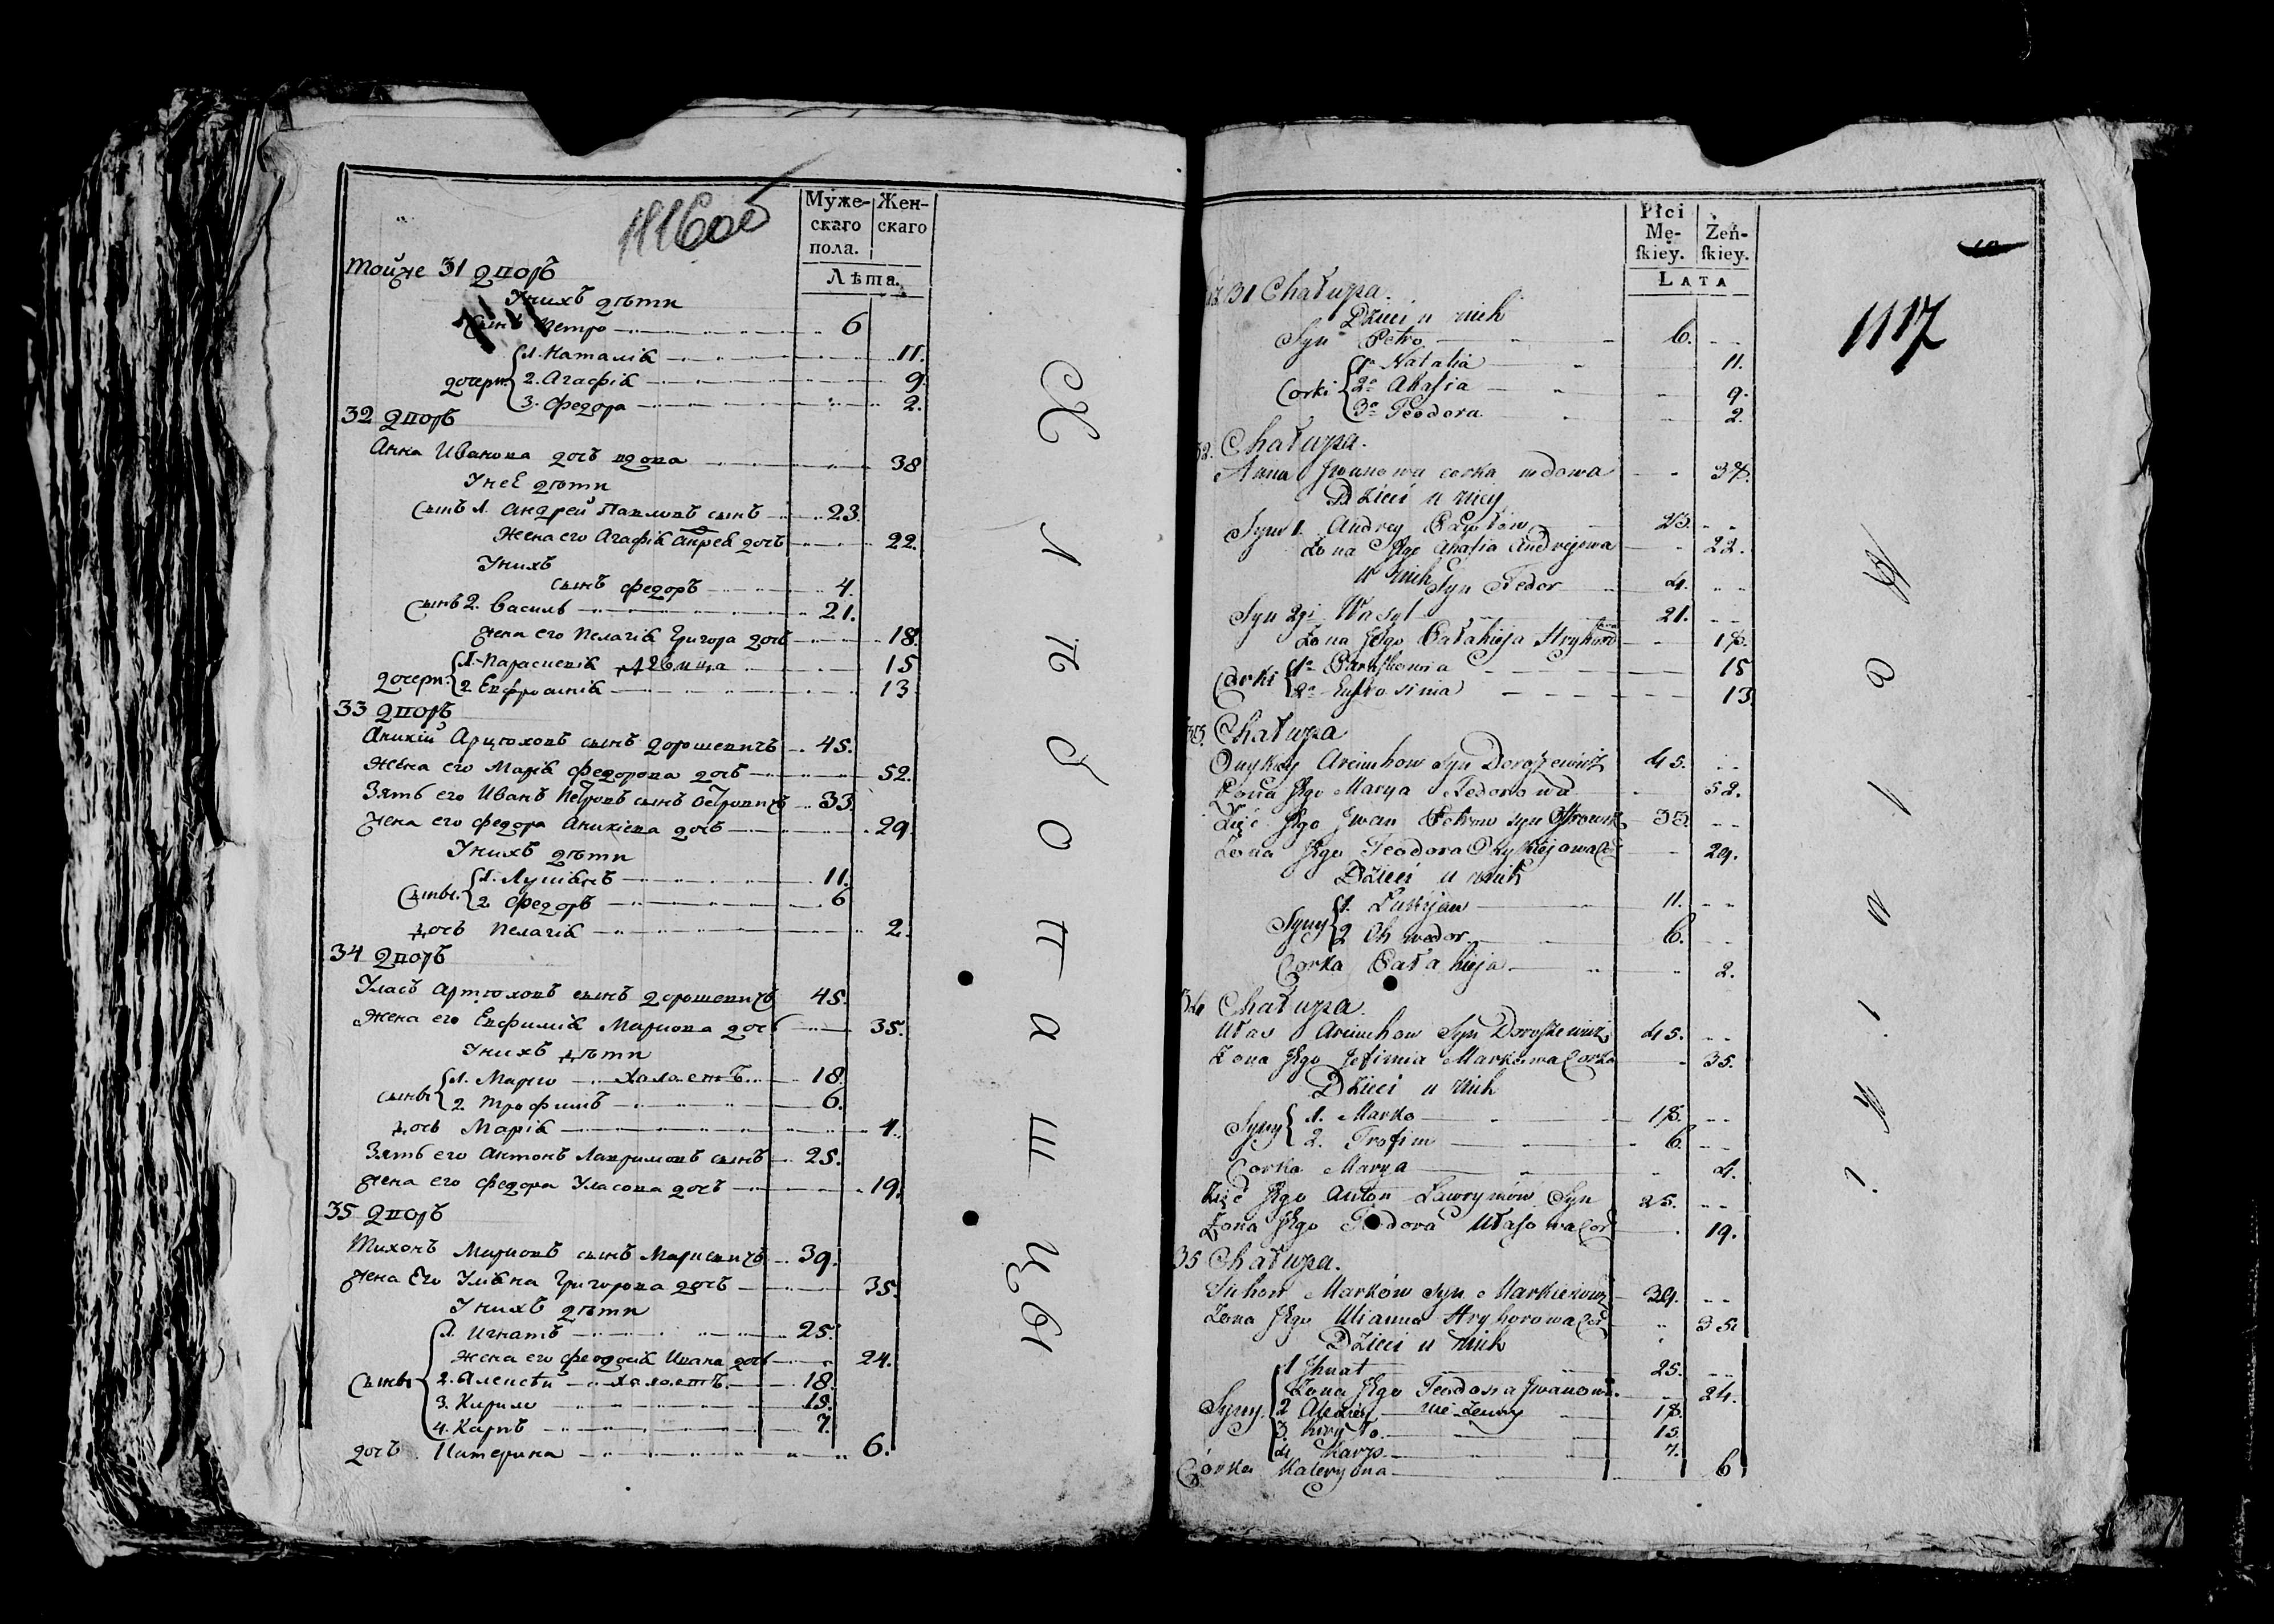 1116об
Муже-
скаго
пола.
Жен-
скаго
Лѣта.
тойже 31 дворъ
Унихъ дѣти
Сынъ Петро 6
дочери 1. Наталія 11.
2. Агафія 9.
3. Федора 2.
32 дворъ
Анна Иванова дочъ вдова 38
Унее дѣти
Сынъ 1. Андрей Павловъ сынъ 23.
Жена его Агафія дочъ 22.
Унихъ
сынъ Федоръ 4.
Сынъ 2. Василь 21.
Жена его Пелагія Григора дочъ 18.
дочери 1. Парасцевія дѣвица 15
2. Евфросинія 13
33 дворъ
Аникій Арцюховъ сынъ Дорошевичъ 45.
Жена его Марія Федорова дочъ 52.
Зять его Иванъ Петровъ сынъ 33.
Жена его Федора Аникіева дочъ 29.
Унихъ дѣти
Сыны 1. Лукіянъ 11.
2. Федоръ 6
дочъ Пелагія 2.
34 дворъ
Уласъ Артюховъ сынъ Дорошевичъ 45.
Жена его Евфимія Маркова дочъ 35.
Унихъ дѣти
сыны 1. Марко холостъ 18.
2. Трофимъ 6.
дочъ Марія 4.
Зять его Антонъ Лавримовъ сынъ 25.
Жена его Федора Уласова дочъ 19.
35 дворъ
Тихонъ Марковъ сынъ Маркевичъ 39.
Жена Его Уліяна Григорова дочъ 35.
Унихъ дѣти
Сыны 1. Игнатъ 25.
Жена его Феодосія Ивана дочъ 24.
2. Алексѣй холостъ 18.
3. Кирило 15.
4. Карпъ 7.
дочъ Катерина 6.
Płci
Mę-
skiey.
Żeń-
skiey.
LATA
1117
31 Chałupa.
Dzieci u nich
Syn Petro 6.
Corki 1a Natalia 11.
2a Ahafia 9.
3a Teodora 2.
32. Chałupa.
Anna Jwanowa corka wdowa 38.
Dzieci u niey
Syn 1. Andrey Pawłow 23.
Żona Jego Ahafia Andrejowa 22.
u nich Syn Fedor 4.
Syn 2gi Wasyl 21.
Żona Jego Pałahieja Hryhorowa 18.
Corki 1a Paraskowia 15
2a Eufrosinia 13
33. Chałupa
Onykiey Arciuchow syn Doroszewicz 45.
Żona Jego Marya Fedorowa 52.
Zięć Jego Jwan Petrow syn 33
Żona Jego Teodora Cor 29.
Dzieci u nich
Syny 1. Łukijan 11.
2 Chwedor 6.
Corka Pałahieja 2.
34 Chałupa.
Ułas Arciuchow Syn Doroszewicz 45.
Żona Jego Jefimia Markowa Corka 35.
Dzieci u nich
Syny 1. Marko 18.
2. Trofim 6.
Corka Marya 4.
Zięć Jego Anton Ławrymów Syn 25.
Żona Jego Teodora Ułasowa Cor 19.
35 Chałupa.
Tichon Marków Syn Markiewicz 39.
Żona Jego Ulianna Hryhorowa Cor 35
Dzieci u nich
Syny. 1 Jhnat 25.
Żona Jego Teodosia Jwanowa 24.
2 Alexiey nie żenny 18.
3. Kiryło. 15.
4 Karp 7.
Córka Kateryna 6